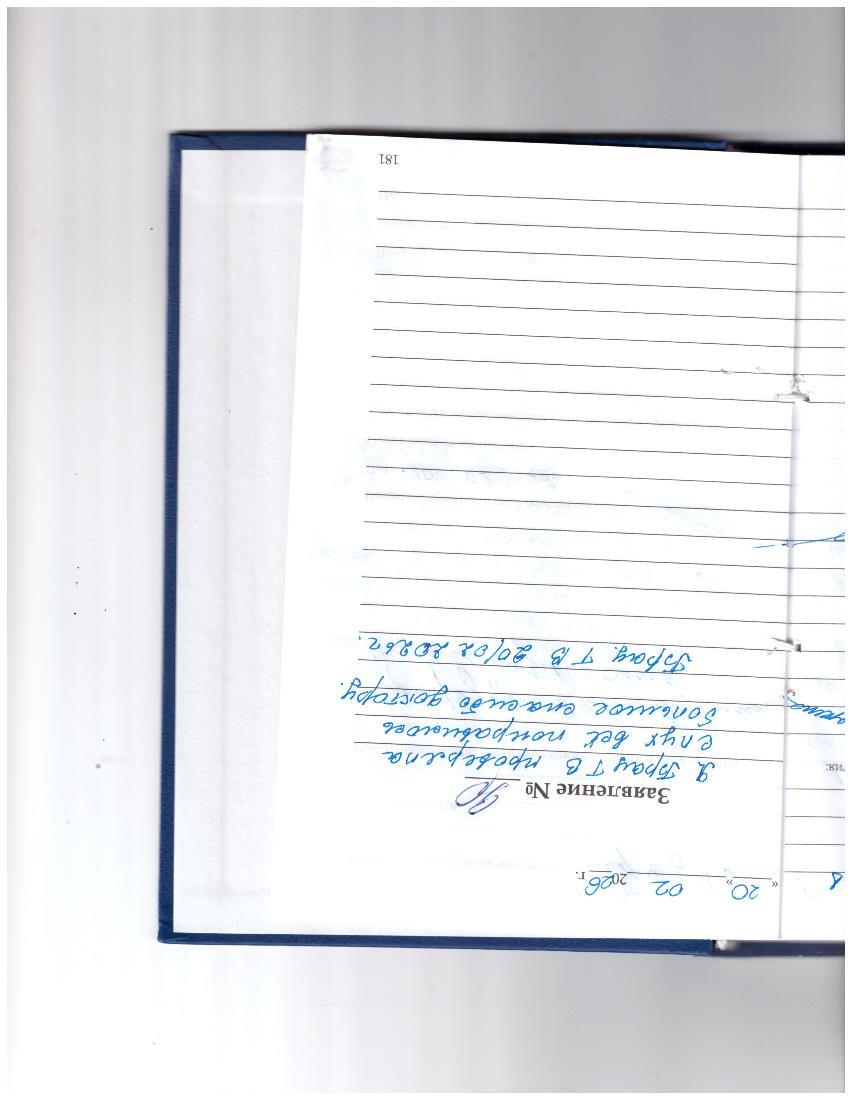 «20» 02 2026 г.
Заявление № 90
Я Брау Т В проверела
слух всё понравилось
большое спасибо доктору.
Брау Т В 20/02 2026г.
181